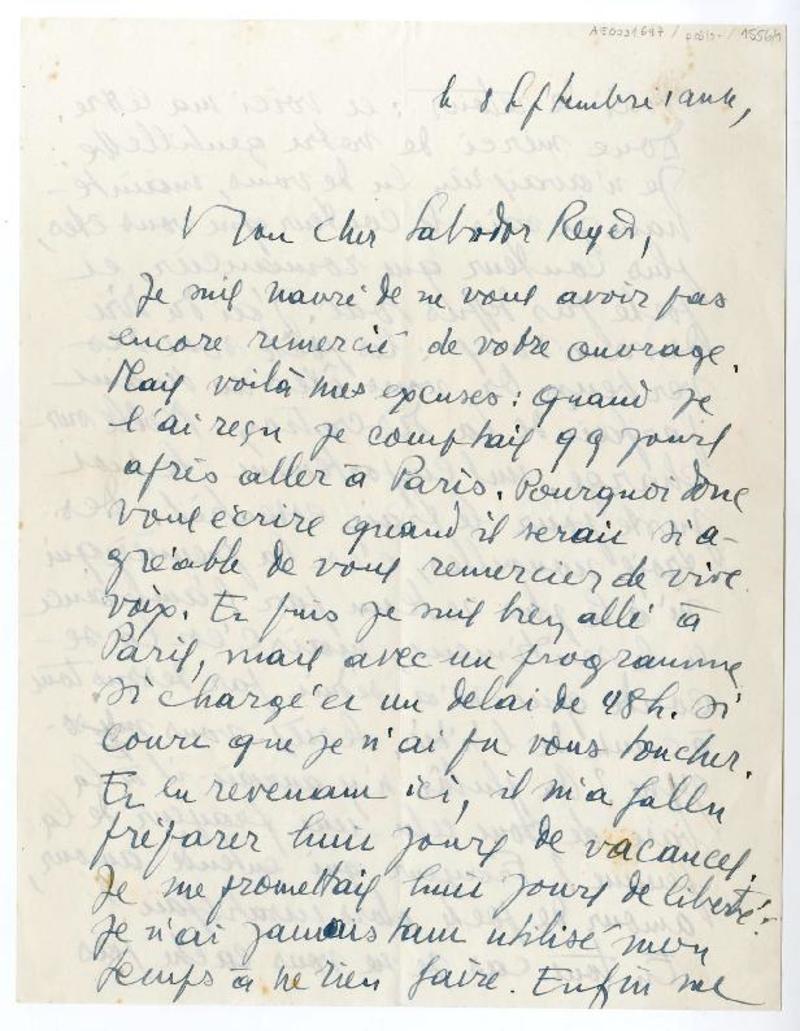 AE0031697 / / 15564
le 8 septembre
Mon cher Salvador Reyes,
Je suis navré de ne vous avoir pas
encore remercié de votre ouvrage.
Mais voilà mes excuses : quand je
l'ai reçu je comptais qq jours
après aller à Paris. Pourquoi donc
vous écrire quand il serait si a-
gréable de vous remercier de vive
voix. Et puis je suis bien allé à
Paris, mais avec un programme
si chargé et un délai de 48h. si
court que je n'ai pu vous toucher.
Et en revenant ici, il m'a fallu
préparer huit jours de vacances.
Je me promettais huit jours de liberté :
Je n'ai jamais tant utilisé mon
temps à ne rien faire. Enfin me